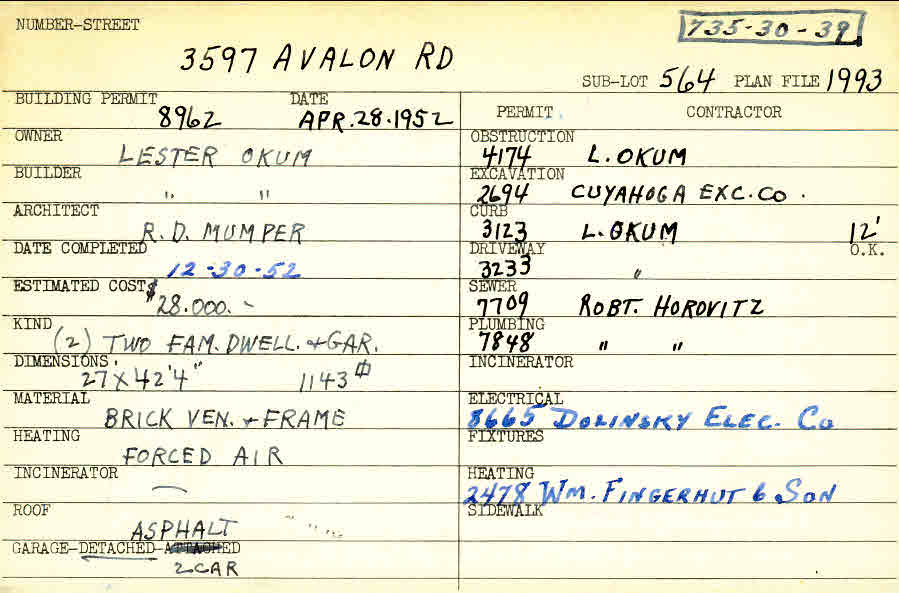 NUMBER-STREET
735-30-39
3597 AVALON RD
SUB-LOT 564 PLAN FILE 1993
BUILDING PERMIT DATE
8962 APR.28.1952
OWNER
LESTER OKUM
BUILDER
" "
ARCHITECT
R.D. MUMPER
DATE COMPLETED
12-30-52
ESTIMATED COST
$28.000.-
KIND
(2) TWO FAM. DWELL. + GAR.
DIMENSIONS.
27 X 42'4" 1143 ⌗
MATERIAL
BRICK VEN. + FRAME
HEATING
FORCED AIR
INCINERATOR
—
ROOF
ASPHALT
GARAGE-DETACHED-ATTACHED
2 CAR
PERMIT CONTRACTOR
OBSTRUCTION
4174 L. OKUM
EXCAVATION
2694 CUYAHOGA EXC. CO.
CURB
3123 L. OKUM 12'
DRIVEWAY O.K.
3233 "
SEWER
7709 ROBT. HOROVITZ
PLUMBING
7848 " "
INCINERATOR
ELECTRICAL
8665 DOLINSKY ELEC. CO
FIXTURES
HEATING
2478 WM. FINGERHUT & SON
SIDEWALK